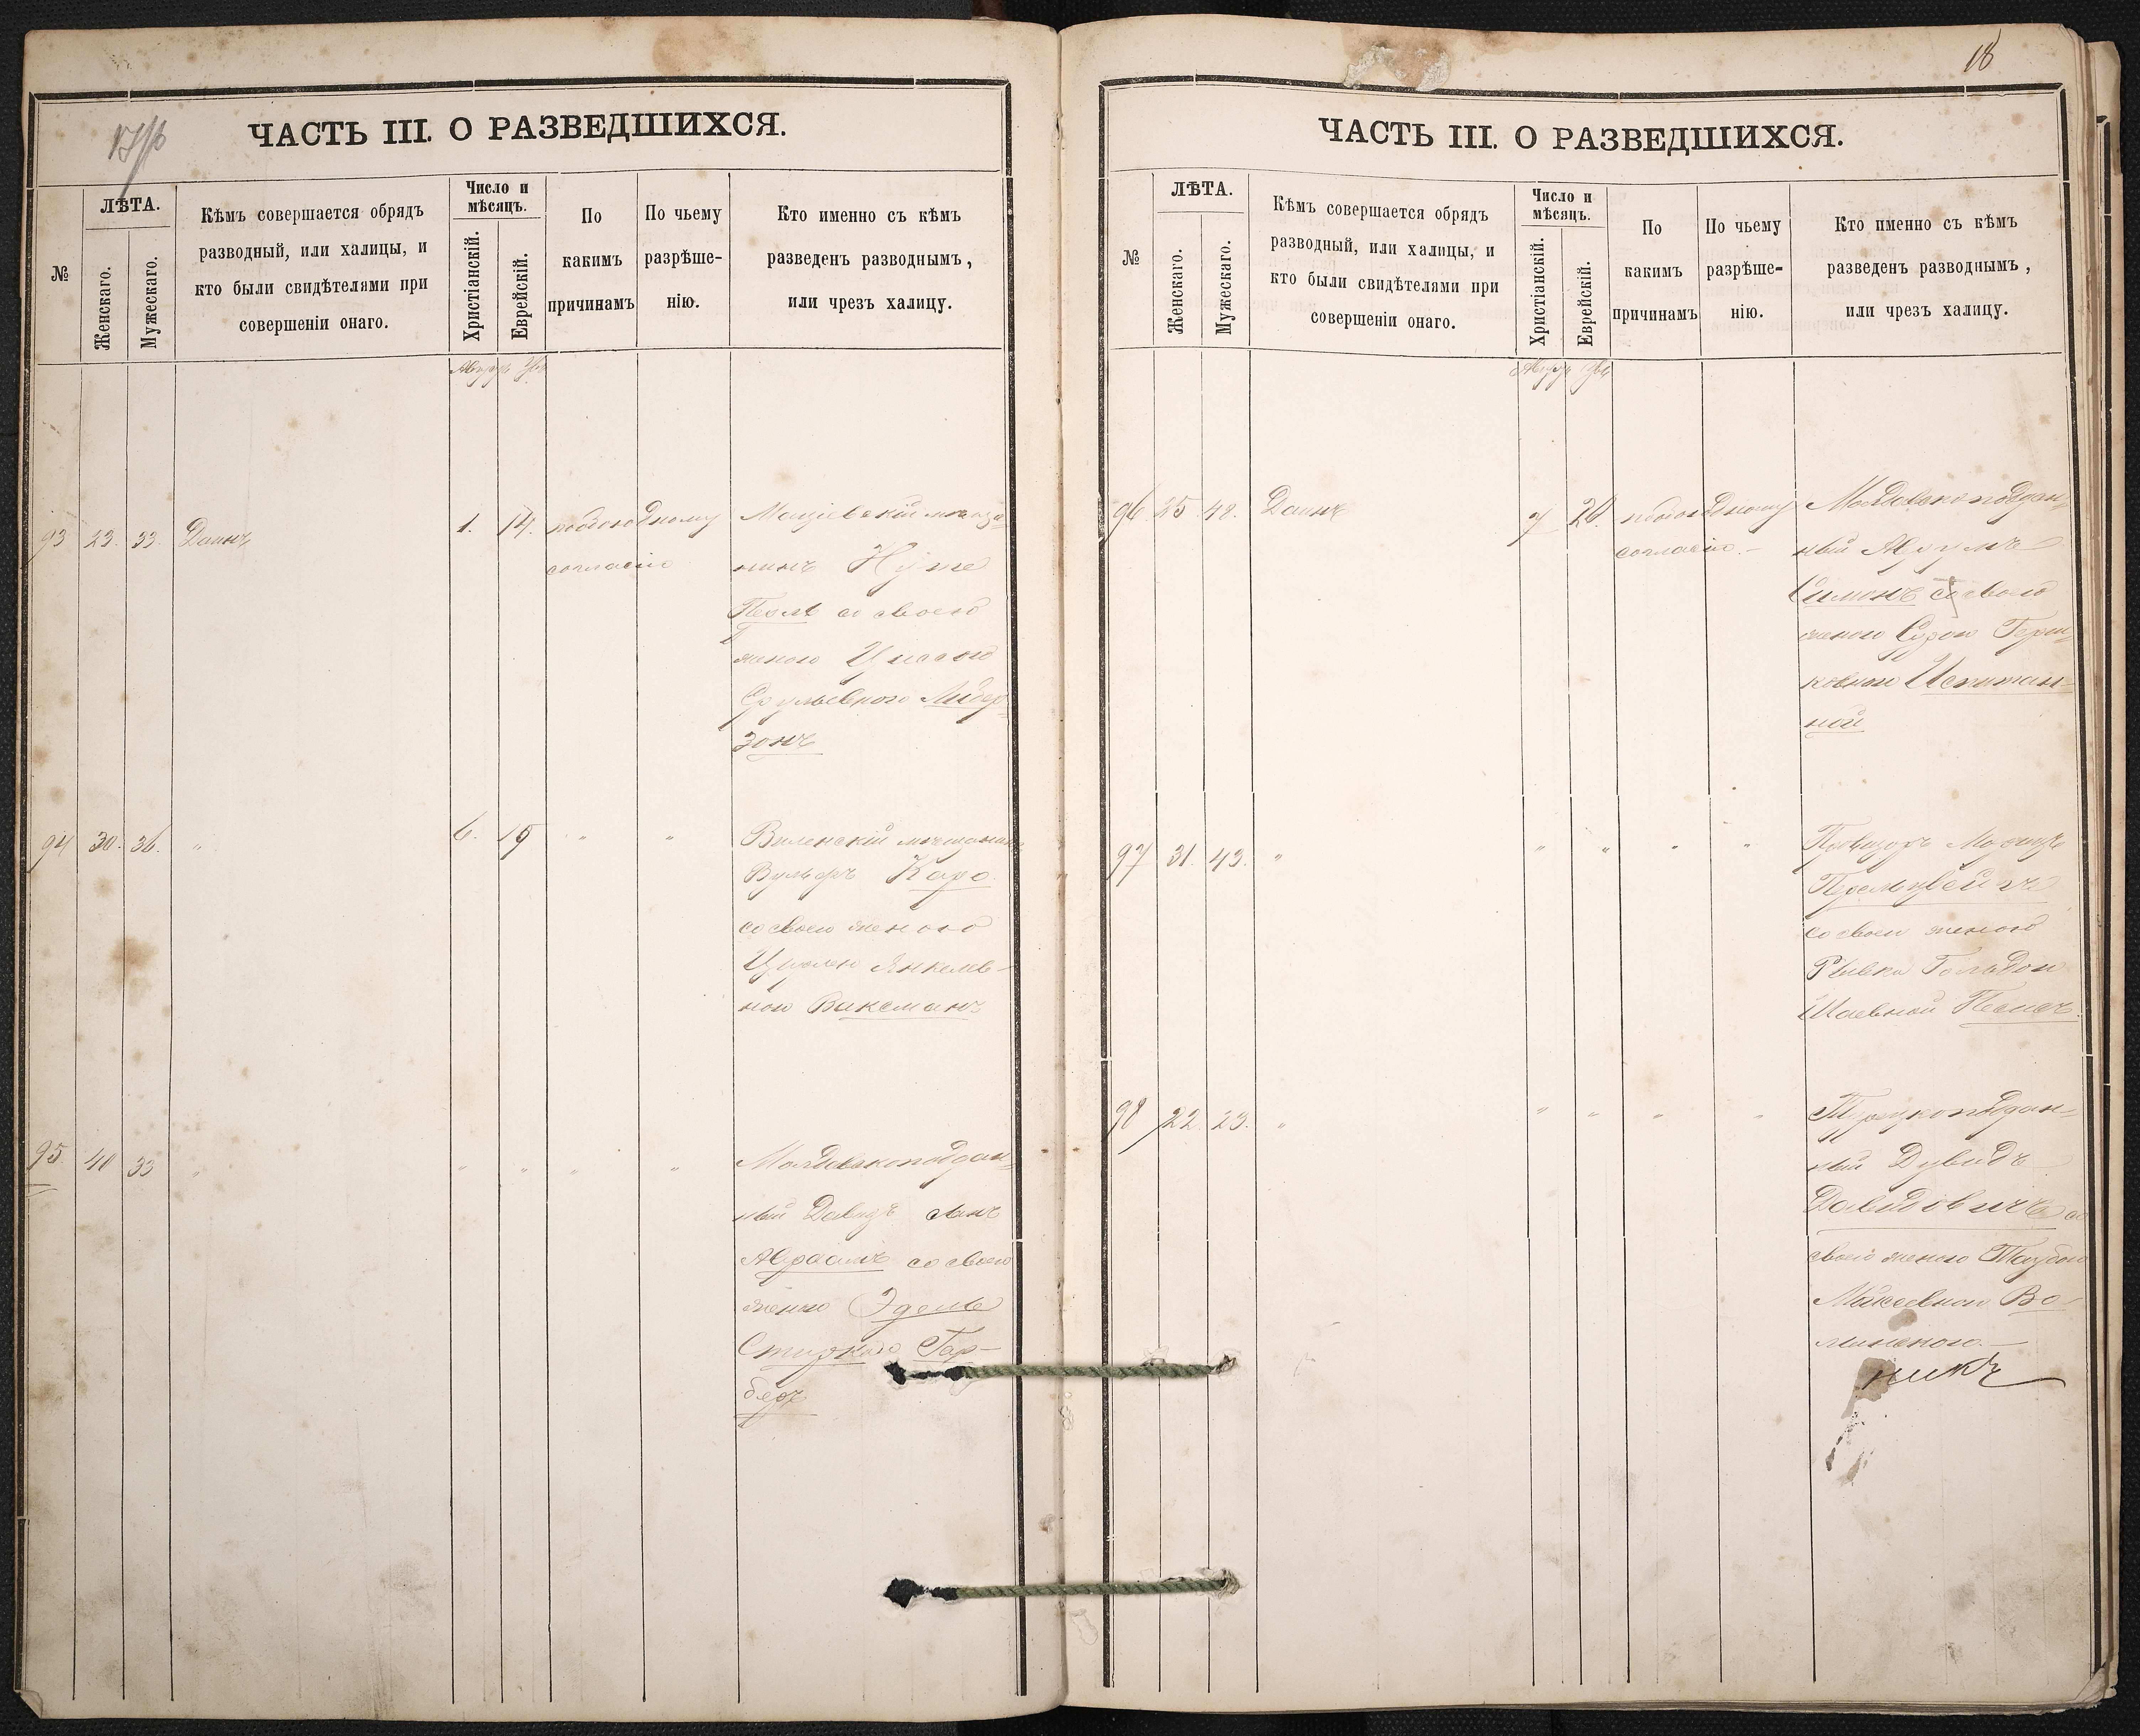 ЧАСТЬ III. О РАЗВЕДШИХСЯ.
№
ЛѢТА.
Женскаго.
Мужескаго.
Кѣмъ совершается обрядъ
разводный, или халицы, и
кто были свидѣтелями при
совершеніи онаго.
Число и
мѣсяцъ.
Христіанскій.
Еврейскій.
По
какимъ
причинамъ
По чьему
разрѣше-
нію.
Кто именно съ кѣмъ
разведенъ разводнымъ,
или чрезъ халицу.
93 23. 33. Даинъ 1. 14. пообоюдному
согласію
нинъ Нуте
со своею
женою
Срулевною Либер
зонъ
94 30. 36. " 6. 19 " " Виленскій мѣщанинъ
Вульфъ Каро
со своею женою
Янкелев-
ной Ваксманъ
95 40 33 " " " " " Молдавскоподдан-
ный Давидъ
Абрамъ со своею
женою Эдель
Гар-
беръ
18
ЧАСТЬ III. О РАЗВЕДШИХСЯ.
№
ЛѢТА.
Женскаго.
Мужескаго.
Кѣмъ совершается обрядъ
разводный, или халицы, и
кто были свидѣтелями при
совершеніи онаго.
Число и
мѣсяцъ.
Христіанскій.
Еврейскій.
По
какимъ
причинамъ
По чьему
разрѣше-
нію.
Кто именно съ кѣмъ
разведенъ разводнымъ,
или чрезъ халицу.
96 25 48. Даинъ 7 20. пообоюдному Молдавскоподдан-
согласію.- ный Аврумъ
Симонъ со своею
женою Сурою Герш
ковною Испитан-
ной
97 31. 43. " " " " " Провизоръ Морицъ
со своею женою
Ривка Гольдою
Шаевной
98 22. 23. " " " " " Турецкоподдан-
ный Дувидъ
Давидовичъ со
своею женою Таубою
Мошковною Во-
линскою.-
никъ